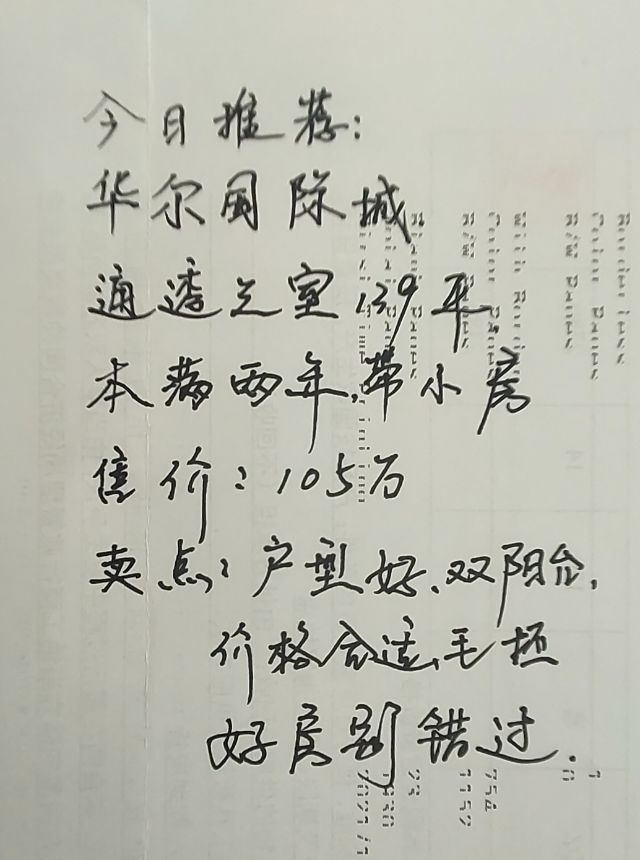 今日推荐:
华尔国际城
通透三室139平,
本满两年,带小房
售价:105万
卖点:户型好、双阳台,
价格合适、毛坯
好房别错过.